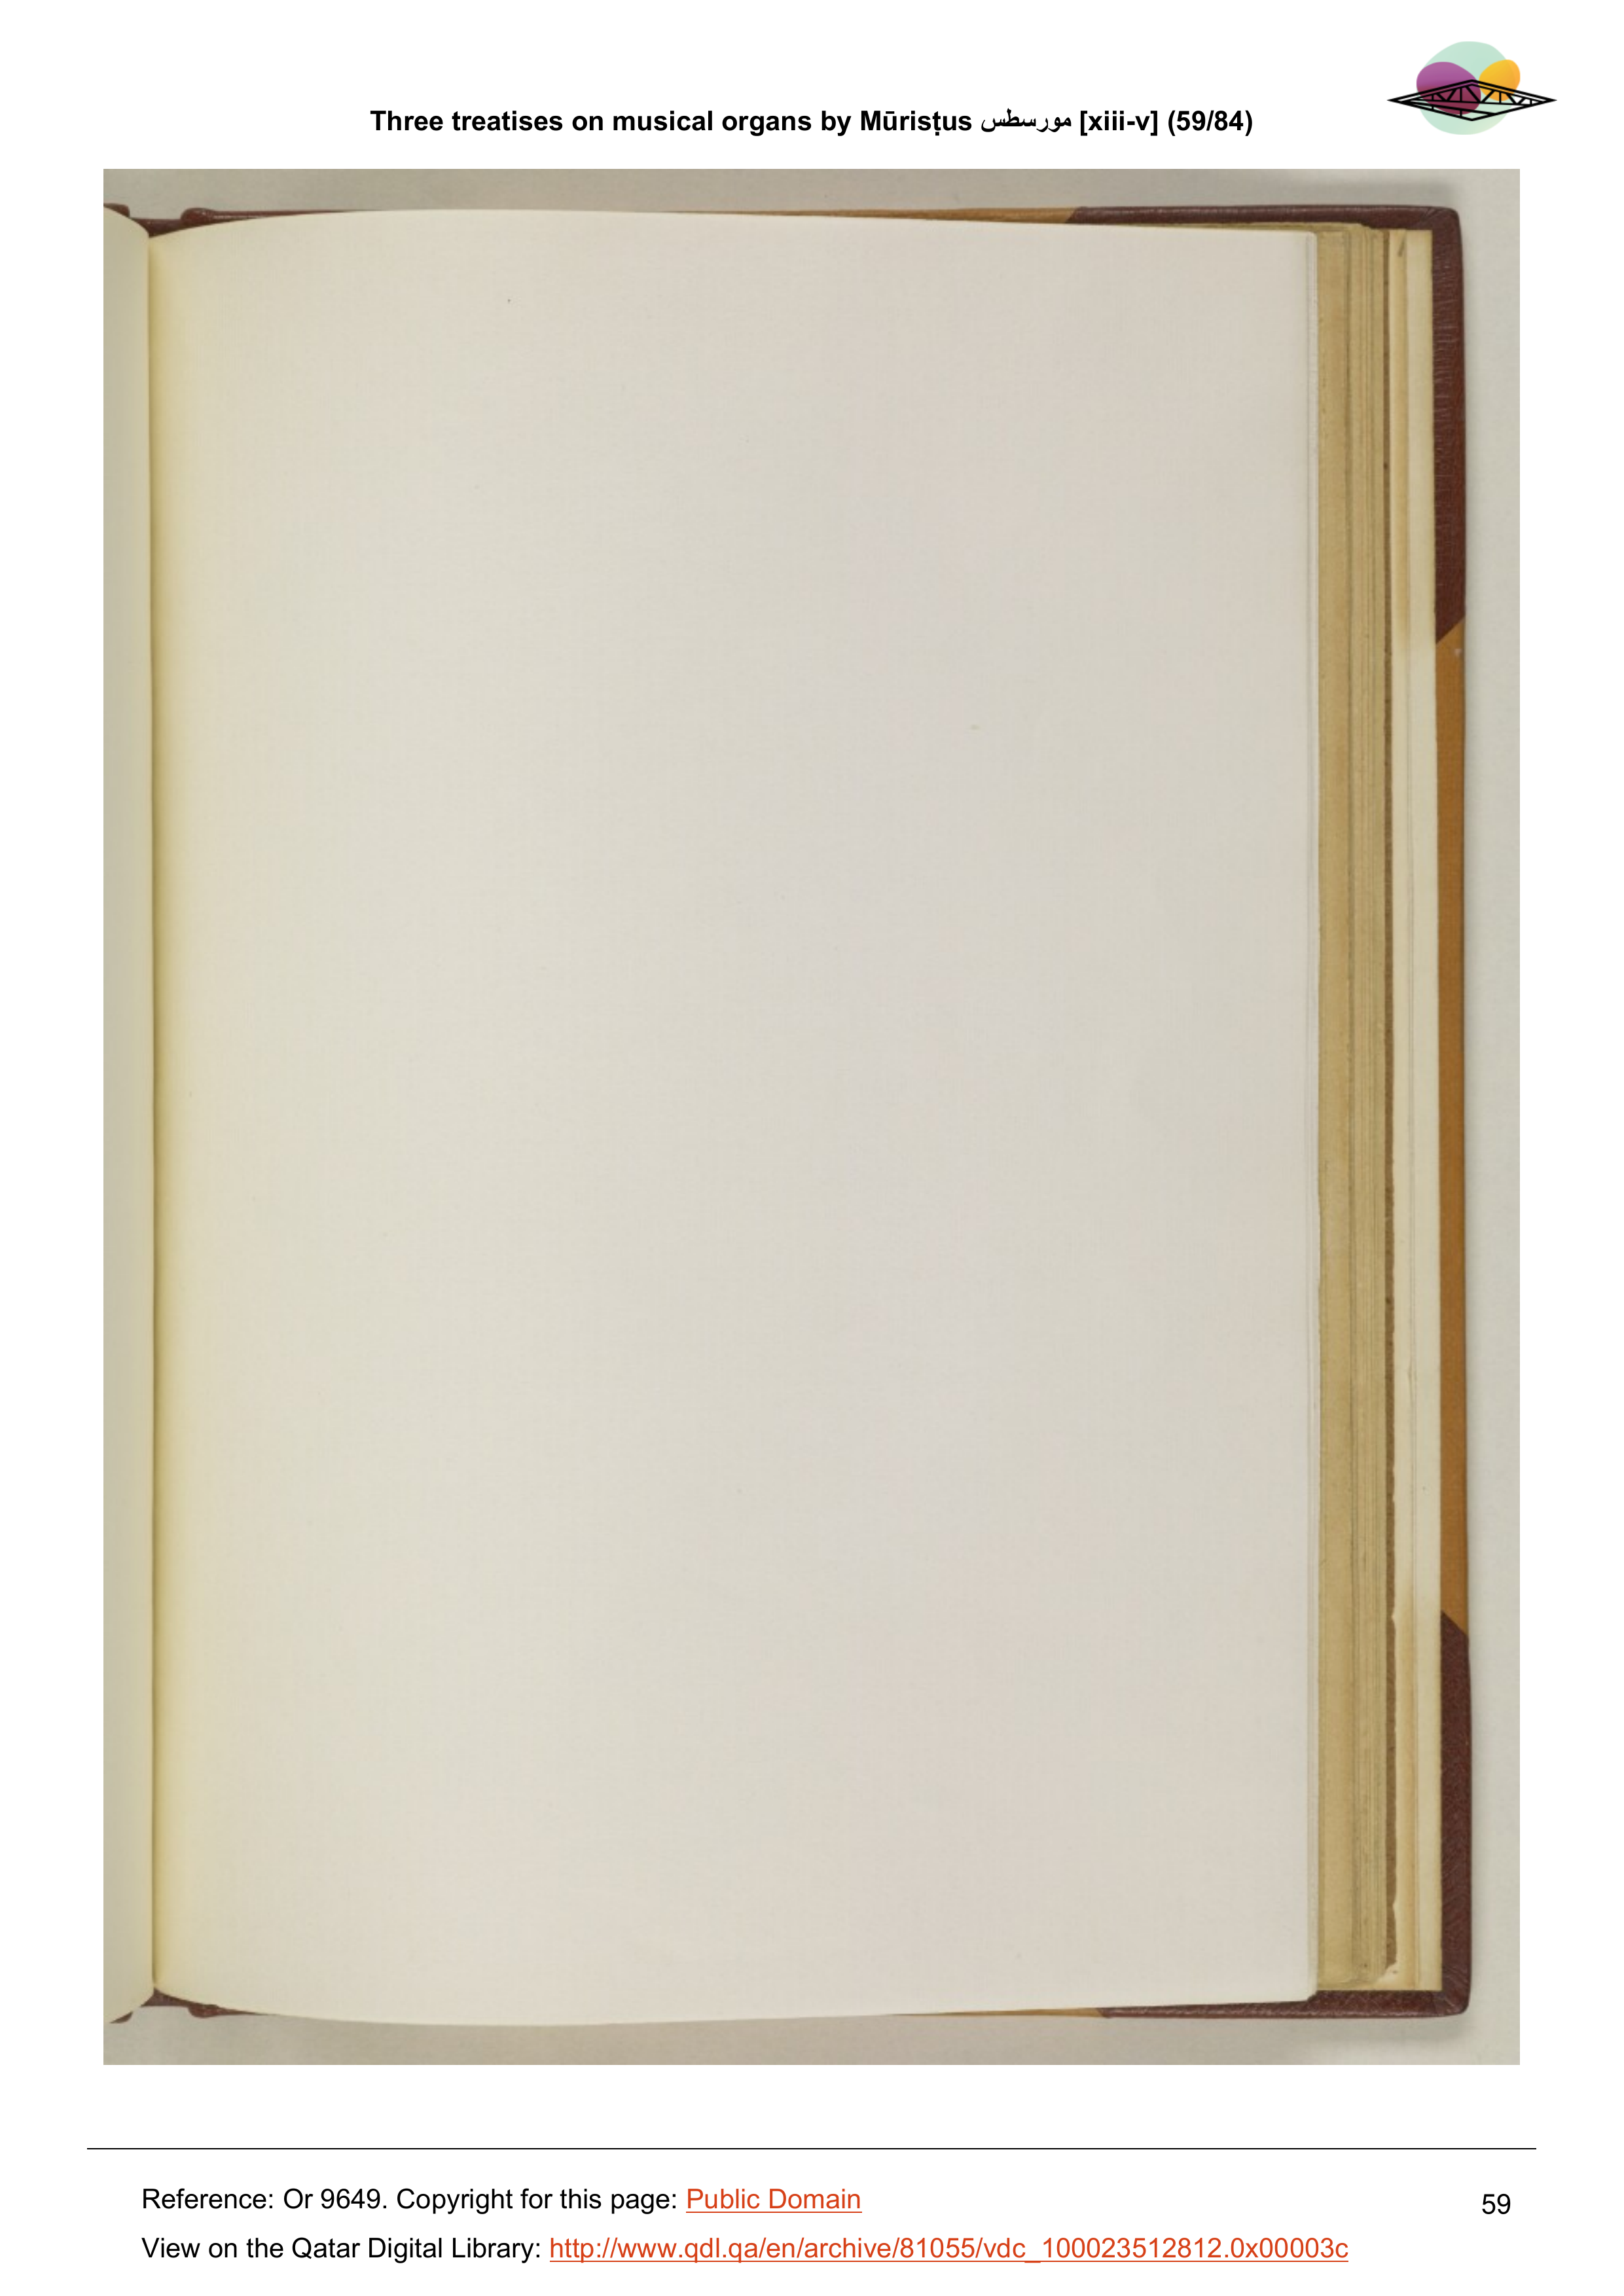 Three treatises on musical organs by Mūrisṭus مورسطس [xiii-v] (59/84)
Reference: Or 9649. Copyright for this page: Public Domain
59
View on the Qatar Digital Library: http://www.qdl.qa/en/archive/81055/vdc_100023512812.0x00003c